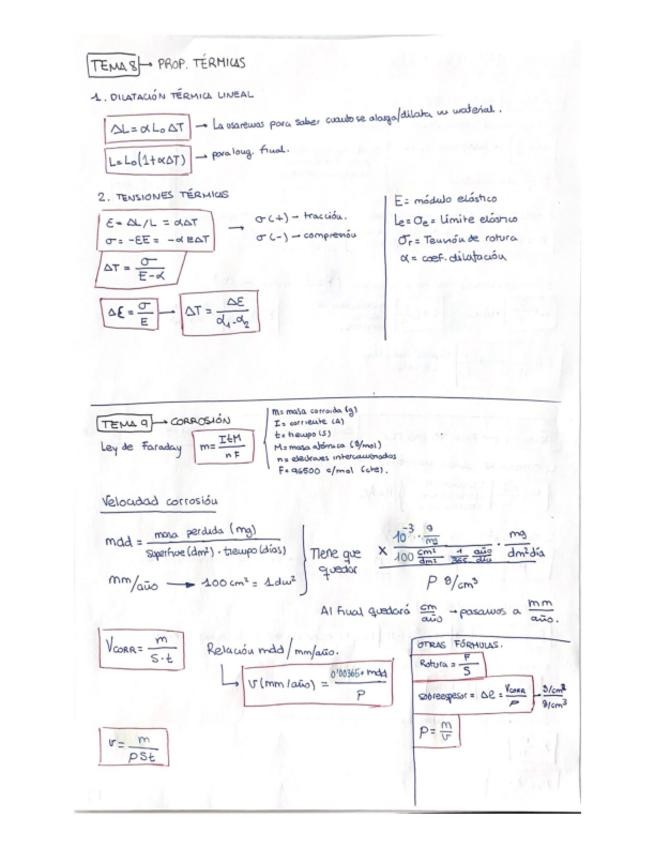 TEMA 8 → PROP. TÉRMICAS
1. DILATACIÓN TÉRMICA LINEAL
ΔL = α L₀ ΔT → La usaremos para saber cuanto se alarga/dilata un material.
L = L₀(1+αΔT) → para long. final.
2. TENSIONES TÉRMICAS
Ɛ = ΔL/L = αΔT
σ = -EƐ = -αEΔT
→ σ(+) → tracción.
σ(-) → compresión
ΔT = σ / E-α
ΔƐ = σ/E → ΔT = ΔƐ / α₁-α₂
E = módulo elástico
Le = σe = Límite elástico
σr = Tensión de rotura
α = coef. dilatación
TEMA 9 → CORROSIÓN
Ley de Faraday m = ItM / nF
m = masa corroida (g)
I = corriente (A)
t = tiempo (s)
M = masa atómica (g/mol)
n = electrones intercambiados
F = 96500 c/mol (cte).
Velocidad corrosión
mdd = masa perdida (mg) / superficie (dm²) · tiempo (días)
mm/año → 100cm² = 1dm²
Tiene que quedar
× 10⁻³ · g/mg / 100 cm²/dm² 1/365 año/día · mg/dm²día
ρ g/cm³
Al final quedará cm/año → pasamos a mm/año.
VCORR = m / S·t
Relación mdd/mm/año.
↳ v(mm/año) = 0'00365 · mdd / ρ
v = m / ρSt
OTRAS FÓRMULAS.
Rotura = F/S
sobreespesor = Δe = VCORR/ρ → g/cm² / g/cm³
ρ = m/v